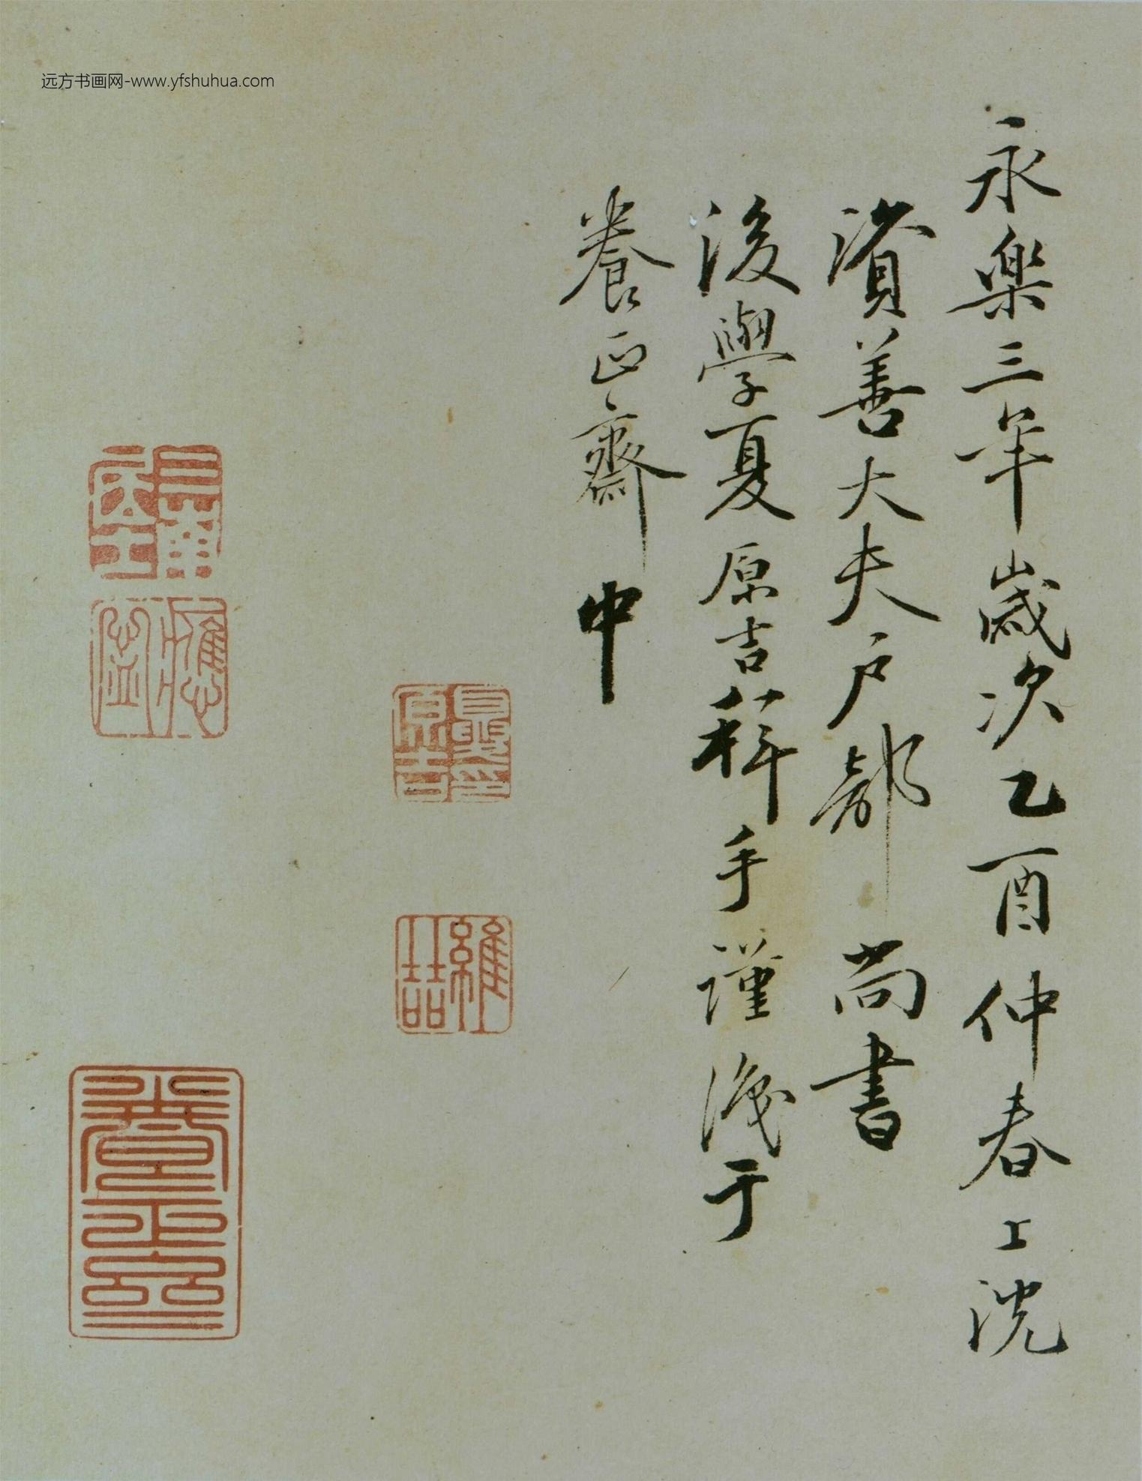 远方书画网-www.yfshuhua.com
永樂三年歲次乙酉仲春上浣
資善大夫戶部尚書
後學夏原吉拜手謹識于
養正齋中
夏印原吉
維喆
養正齋